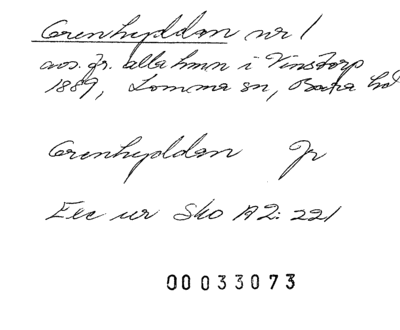 Grenhyddan nr 1
avs. fr. alla hmn i Vinstorp
1889, Lomma sn, Bara hd
Grenhyddan Jr
Exc ur Sko A2: 221
00033073